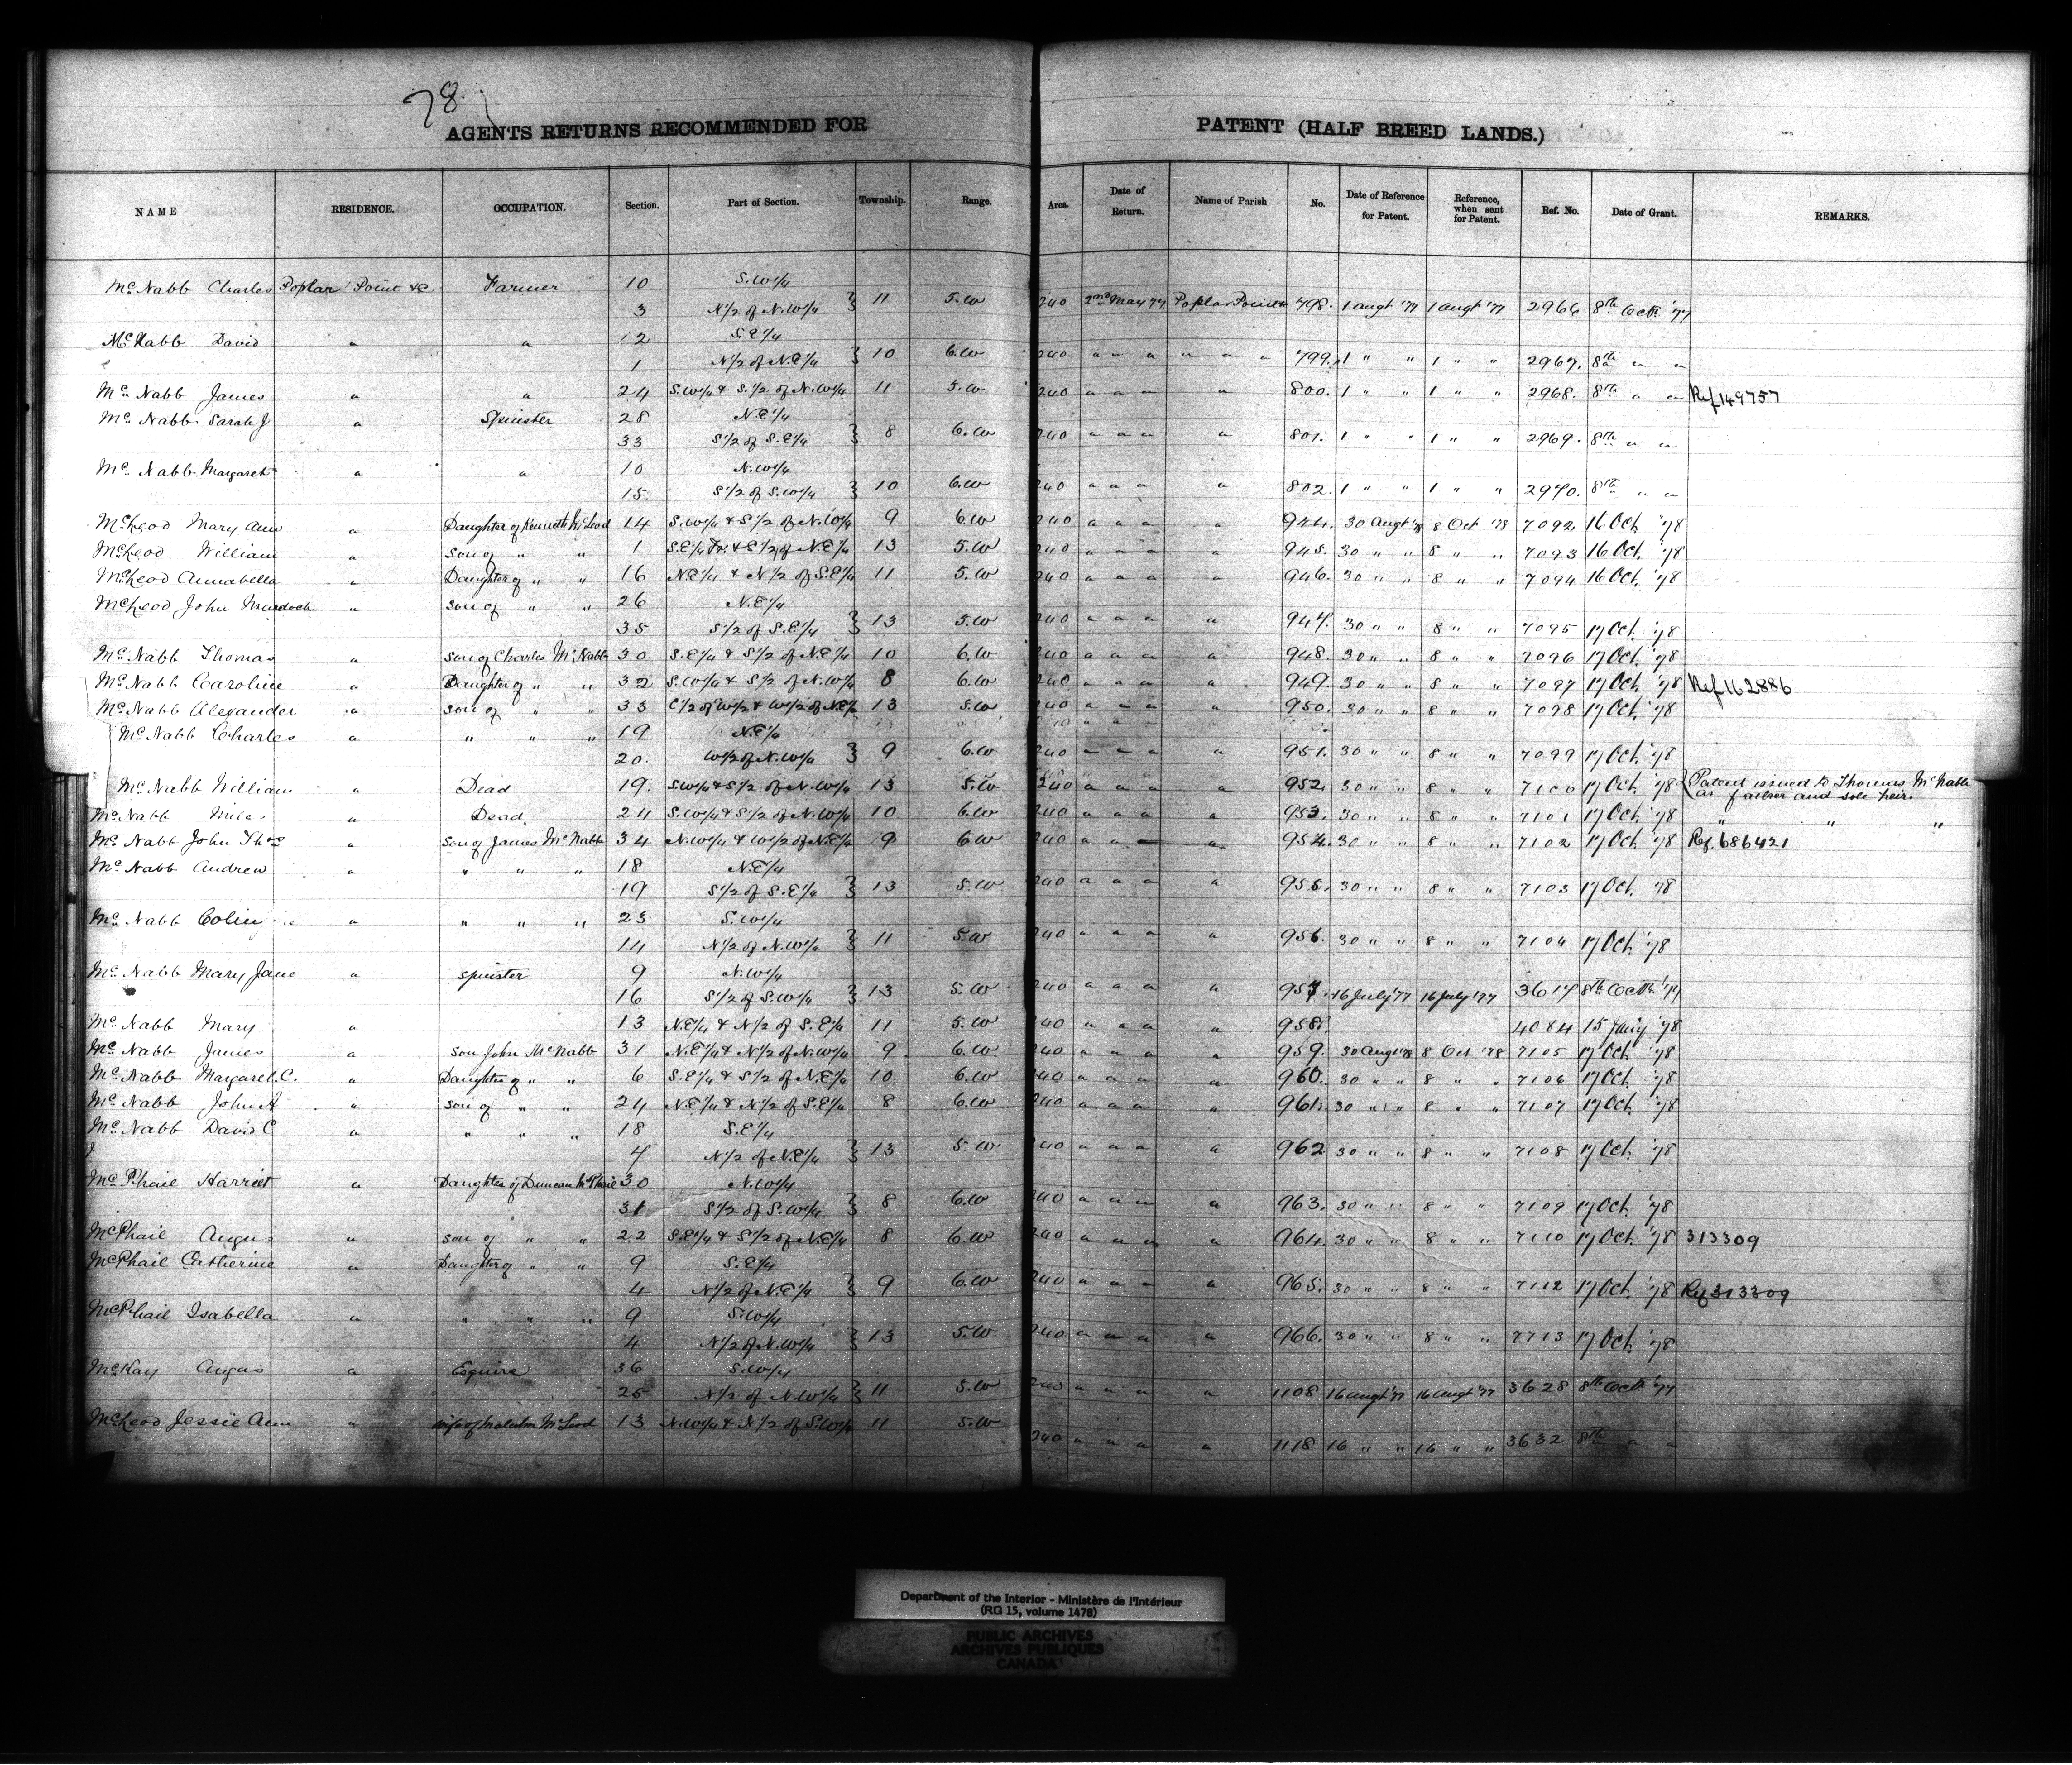 78
AGENTS RETURNS RECOMMENDED FOR PATENT (HALF BREED LANDS.)
NAME RESIDENCE. OCCUPATION. Section. Part of Section. Township. Range. Area. Date of Return. Name of Parish No. Date of Reference for Patent. Reference, when sent for Patent. Ref. No. Date of Grant. REMARKS.
McNabb Charles Poplar Point &c Farmer 10 S.W1/4
3 N1/2 of N.W1/4 } 11 5.W 240 2nd May 77 Poplar Point 798. 1 Augt '77 1 Augt '77 2966 8th Octr '77
McNabb David " " 12 S.E1/4
1 N1/2 of N.E1/4 } 10 6.W 240 " " " " " " 799. 1 " " 1 " " 2967. 8th " "
McNabb James " " 24 S.W1/4 & S.1/2 of N.W1/4 11 5.W 240 " " " " 800. 1 " " 1 " " 2968. 8th " " Ref 149757
McNabb Sarah J " Spinster 28 N.E1/4
33 S1/2 of S.E1/4 } 8 6.W 240 " " " " 801. 1 " " 1 " " 2969. 8th " "
McNabb Margaret " " 10 N.W1/4
15. S1/2 of S.W1/4 } 10 6.W 240 " " " " 802. 1 " " 1 " " 2970. 8th " "
McLeod Mary Ann " Daughter of Kenneth McLeod 14 S.W1/4 & S1/2 of N.W1/4 9 6.W 240 " " " " 944. 30 Augt '78 8 Oct '78 7092 16 Oct '78
McLeod William " son of " " 1 S.E1/4 Fr. & E1/2 of N.E1/4 13 5.W 240 " " " " 945. 30 " " 8 " " 7093 16 Oct. '78
McLeod Annabella " Daughter of " " 16 N.E1/4 & N1/2 of S.E1/4 11 5.W 240 " " " " 946. 30 " " 8 " " 7094 16 Oct. '78
McLeod John Murdoch " son of " " 26 N.E1/4
35 S1/2 of S.E1/4 } 13 5.W 240 " " " " 947. 30 " " 8 " " 7095 17 Oct. '78
McNabb Thomas " son of Charles McNabb 30 S.E1/4 & S1/2 of N.E1/4 10 6.W 240 " " " " 948. 30 " " 8 " " 7096 17 Oct. '78
McNabb Caroline " Daughter of " " 32 S.W1/4 & S1/2 of N.W1/4 8 6.W 240 " " " " 949. 30 " " 8 " " 7097 17 Oct. '78 Ref 162886
McNabb Alexander " son of " " 33 E1/2 of W1/2 & W1/2 of N.E1/4 13 5.W 240 " " " " 950. 30 " " 8 " " 7098 17 Oct. '78
McNabb Charles " " " " 19 N.E1/4
20. W1/2 of N.W1/4 } 9 6.W 240 " " " " 951. 30 " " 8 " " 7099 17 Oct. '78
McNabb William " Dead 19. S.W1/4 & S1/2 of N.W1/4 13 5.W 240 " " " " 952. 30 " " 8 " " 7100 17 Oct. '78 { Patent issued to Thomas McNabb
as father and sole heir.
McNabb " Dead 24 S.W1/4 & S1/2 of N.W1/4 10 6.W 240 " " " " 953. 30 " " 8 " " 7101 17 Oct. '78 " " "
McNabb John Thos " son of James McNabb 34 N.W1/4 & W1/2 of N.E1/4 9 6.W 240 " " " " 954. 30 " " 8 " " 7102 17 Oct. '78 Ref. 686421
McNabb Andrew " " " " 18 N.E1/4
19 S1/2 of S.E1/4 } 13 5.W 240 " " " " 955. 30 " " 8 " " 7103 17 Oct. '78
McNabb Colin " " " " 23 S.W1/4
14 N1/2 of N.W1/4 } 11 5.W 240 " " " " 956. 30 " " 8 " " 7104 17 Oct. '78
McNabb Mary Jane " spinster 9 N.W1/4
16 S1/2 of S.W1/4 } 13 5.W 240 " " " " 957. 16 July '77 16 July '77 3617 8th Octr '77
McNabb Mary " 13 N.E1/4 & N1/2 of S.E1/4 11 5.W 240 " " " " 958. 4084 15 Jany '78
McNabb James " son John McNabb 31 N.E1/4 & N1/2 of N.W1/4 9 6.W 240 " " " " 959. 30 Augt '78 8 Oct '78 7105 17 Oct. '78
McNabb Margaret C. " Daughter of " " 6 S.E1/4 & S1/2 of N.E1/4 10 6.W 240 " " " " 960. 30 " " 8 " " 7106 17 Oct. '78
McNabb John A " son of " " 24 N.E1/4 & N1/2 of S.E1/4 8 6.W 240 " " " " 961. 30 " " 8 " " 7107 17 Oct. '78
McNabb David C " " " " 18 S.E1/4
4 N1/2 of N.E1/4 } 13 5.W 240 " " " " 962 30 " " 8 " " 7108 17 Oct. '78
McPhail Harriet " Daughter of Duncan McPhail 30 N.W1/4
31 S1/2 of S.W1/4 } 8 6.W 240 " " " " 963. 30 " " 8 " " 7109 17 Oct. '78
McPhail Angus " son of " " 22 S.E1/4 & S1/2 of N.E1/4 8 6.W 240 " " " " 964. 30 " " 8 " " 7110 17 Oct. '78 313309
McPhail Catherine " Daughter of " " 9 S.E1/4
4 N1/2 of N.E1/4 } 9 6.W 240 " " " " 965. 30 " " 8 " " 7112 17 Oct. '78 Ref 313309
McPhail Isabella " " " " 9 S.W1/4
4 N1/2 of N.W1/4 } 13 5.W 240 " " " " 966. 30 " " 8 " " 7713 17 Oct. '78
McKay Angus " Esquire 36 S.W1/4
25 N1/2 of N.W1/4 } 11 5.W 240 " " " " 1108 16 Augt '77 16 Augt '77 3628 8th Octr '77
McLeod Jessie Ann " wife of Malcolm McLeod 13 N.W1/4 & N1/2 of S.W1/4 11 5.W 240 " " " " 1118 16 " " 16 " " 3632 8th " "
Department of the Interior - Ministère de l'Intérieur
(RG 15, volume 1478)
PUBLIC ARCHIVES
ARCHIVES PUBLIQUES
CANADA